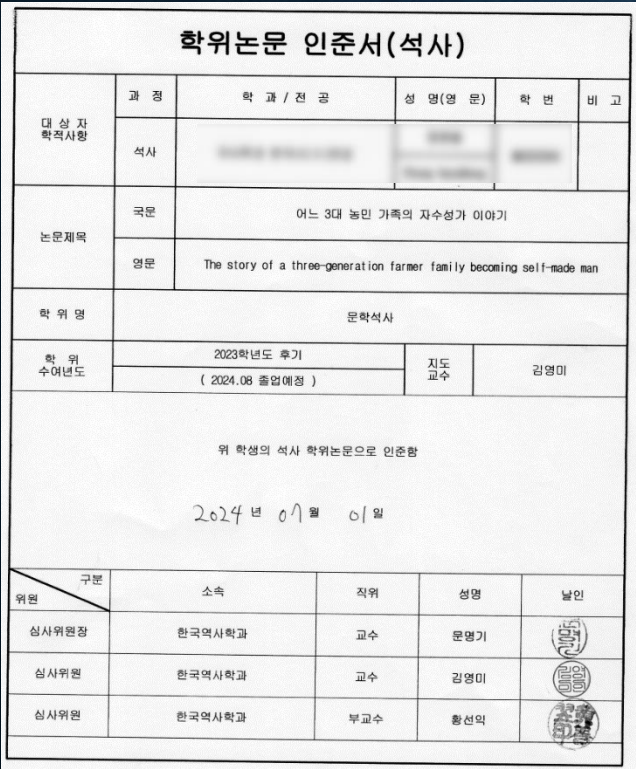 학위논문 인준서(석사)
대 상 자
학적사항
과 정
학 과/전 공
성 명(영 문)
학 번
비 고
석사
논문제목
국문
어느 3대 농민 가족의 자수성가 이야기
영문
The story of a three-generation farmer family becoming self-made man
학 위 명
문학석사
학 위
수여년도
2023학년도 후기
( 2024.08 졸업예정 )
지도
교수
김영미
위 학생의 석사 학위논문으로 인준함
2024 년 07 월 01 일
구분
위원
소속
직위
성명
날인
심사위원장
한국역사학과
교수
문명기
심사위원
한국역사학과
교수
김영미
심사위원
한국역사학과
부교수
황선익